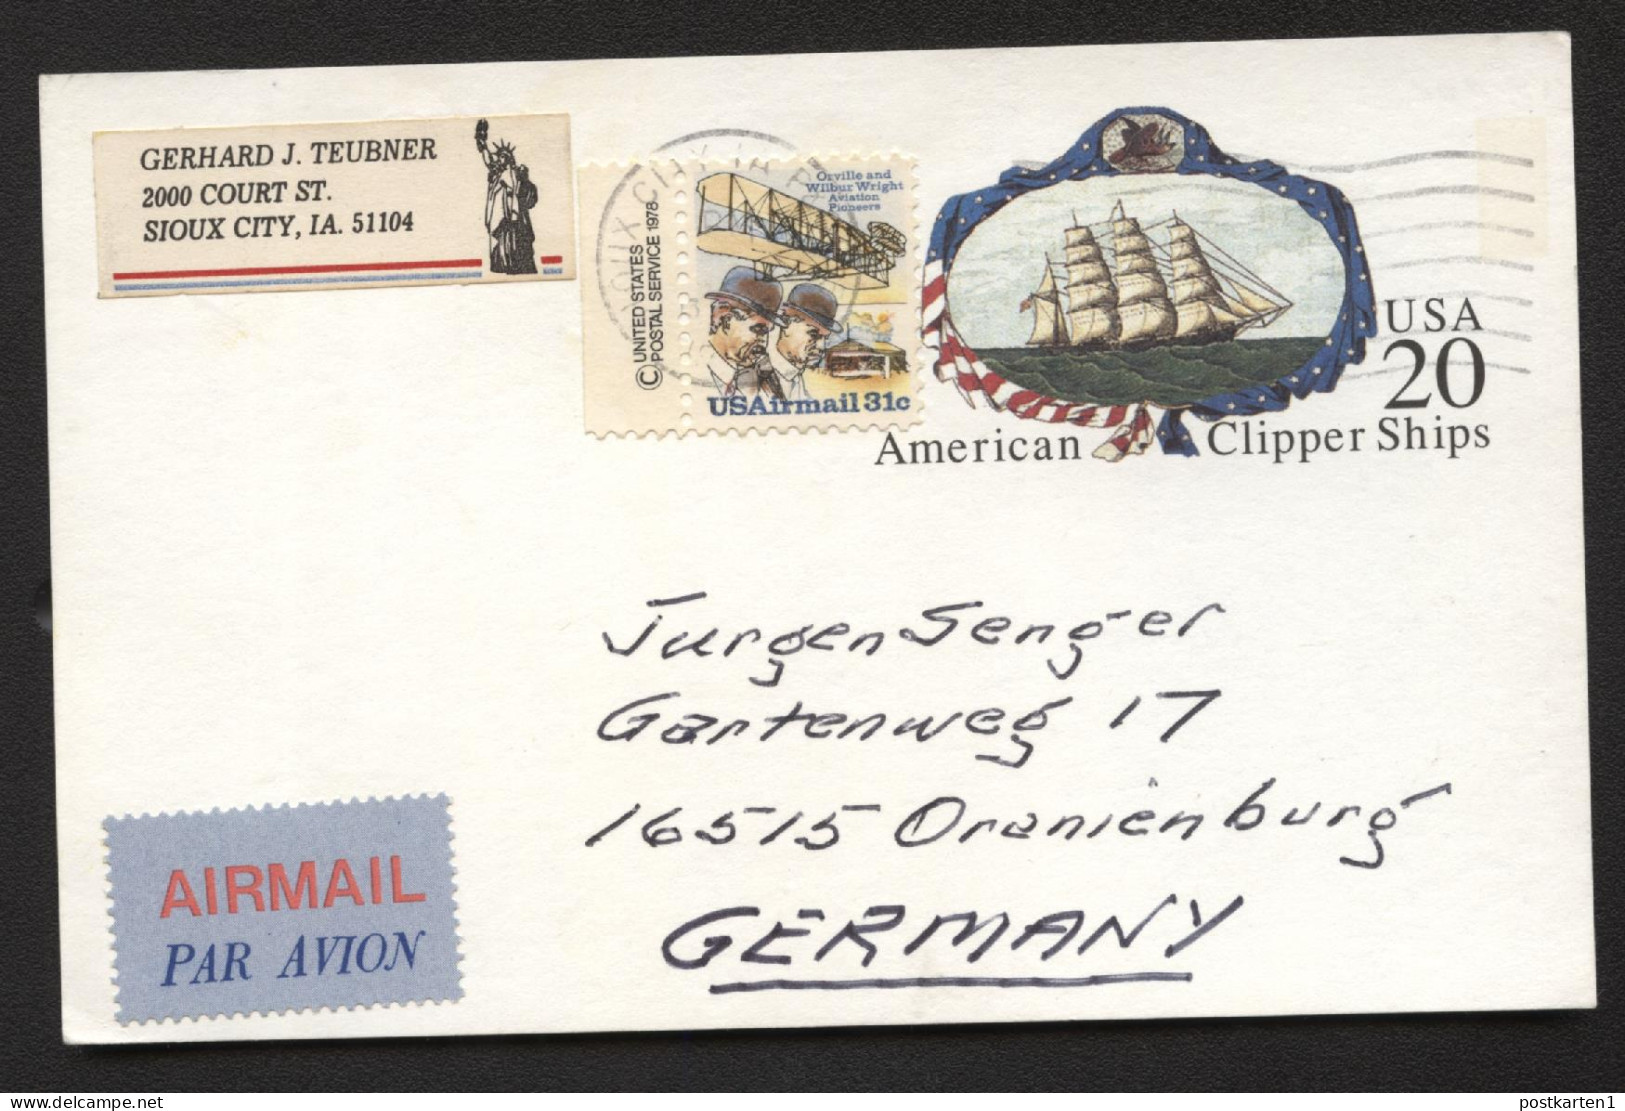 GERHARD J. TEUBNER
2000 COURT ST.
SIOUX CITY, IA. 51104
© UNITED STATES
POSTAL SERVICE 1978
Orville and
Wilbur Wright
Aviation
Pioneers
USAirmail 31c
USA
20
American Clipper Ships
Jurgen Senger
Gartenweg 17
16515 Oranienburg
GERMANY
AIRMAIL
PAR AVION
postkarten1